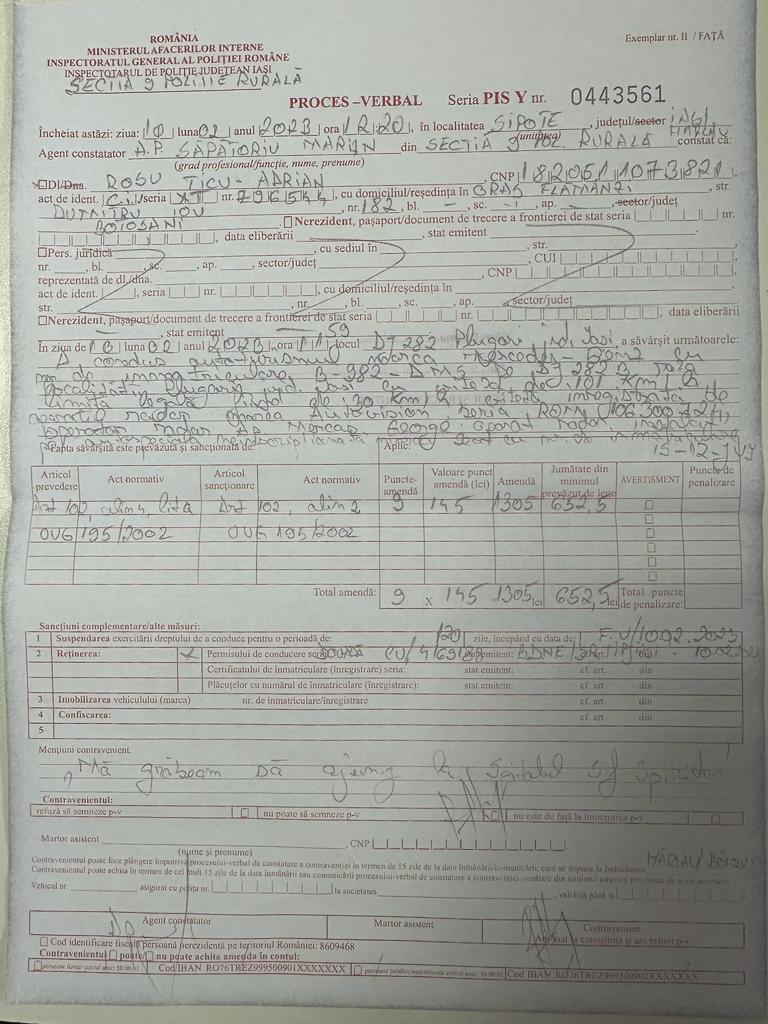 ROMÂNIA
MINISTERUL AFACERILOR INTERNE
INSPECTORATUL GENERAL AL POLIȚIEI ROMÂNE
INSPECTOTARUL DE POLIȚIE JUDEȚEAN IAȘI
SECȚIA 9 POLIȚIE RURALĂ
Exemplar nr. II / FAȚĂ
PROCES –VERBAL Seria PIS Y nr. 0443561
Încheiat astăzi: ziua: 10 luna 02 anul 2023 ora 12:20, în localitatea SIPOTE, județul/sector IAȘI
Agent constatator A.P. SĂPĂTORIU MARIAN din SECȚIA 9 POL. RURALĂ HÎRLĂU constat că:
(grad profesional/funcție, nume, prenume) (unitatea)
Dl/Dna. ROSU TICU-ADRIAN, CNP 1820511073821
act de ident. C.I., seria XT nr. 796544, cu domiciliul/reședința în ORAȘ FLĂMÂNZI, str.
DUMITRU IOV, nr. 182, bl. – sc. – ap. , sector/județ
BOTOȘANI Nerezident, pașaport/document de trecere a frontierei de stat seria nr.
, data eliberării , stat emitent
Pers. juridică , cu sediul în , str.
nr. , bl. , sc. , ap. , sector/județ , CUI
reprezentată de dl./dna. , CNP
act de ident. , seria nr. , cu domiciliu/reședința în
str. , nr. , bl. , sc. , ap. , sector/județ
Nerezident, pașaport/document de trecere a frontierei de stat seria nr. , data eliberării
, stat emitent
În ziua de 10 luna 02 anul 2023, ora 11 59 locul DJ 282 Plugari, jud. Iasi, a săvârșit următoarele:
A condus autoturismul marca Mercedes-Benz cu
nr. de inmatriculare B-982-DMS pe DJ 282 B raza
localitatii Plugari, jud. Iasi cu viteza de 101 Km/h
limita legală fiind de 30 Km/h, viteza inregistrata de
aparatul radar marca Autovision seria
operator radar Ag. George
cu nr. de inmatriculare
Fapta săvârșită este prevăzută și sancționată de: Aplic:
Articol prevedere Act normativ Articol sancționare Act normativ Puncte-amendă Valoare punct amendă (lei) Amendă Jumătate din minimul prevăzut de lege AVERTISMENT Puncte de penalizare
Art 102, alin 4, lit a Art 102, alin 2 9 145 1305 652,5
OUG 195/2002 OUG 195/2002
Total amendă: 9 x 145 1305 lei 652,5 lei Total puncte de penalizare:
Sancțiuni complementare/alte măsuri:
1 Suspendarea exercitării dreptului de a conduce pentru o perioadă de: 120 zile, începând cu data de
2 Reținerea: X Permisului de conducere seria stat emitent:
Certificatului de înmatriculare (înregistrare) seria: stat emitent: cf. art. din
Plăcuțelor cu numărul de înmatriculare (înregistrare): stat emitent: cf. art. din
3 Imobilizarea vehiculului (marca) nr. de înmatriculare/înregistrare cf. art. din
4 Confiscarea: cf. art. din
5
Mențiuni contravenient:
„Mă grăbeam să ajung la Spitalul Sf Spiridon”
Contravenientul:
refuză să semneze p-v nu poate să semneze p-v nu este de față la întocmirea p-v
Martor asistent , CNP
(nume și prenume)
Contravenientul poate face plângere împotriva procesului-verbal de constatare a contravenției în termen de 15 zile de la data înmânării/comunicării, care se depune la Judecătoria
Contravenientul poate achita în termen de cel mult 15 zile de la data înmânării sau comunicării procesului-verbal de constatare a contravenției jumătate din minimul amenzii prevăzute de actul normativ
Vehicul nr. asigurat cu polița nr. la societatea , valabilă până la
Agent constatator Martor asistent Contravenient
Am luat la cunoștință și am primit p-v
Cod identificare fiscală persoană nerezidentă pe teritoriul României: 8609468
Contravenientul poate/ nu poate achita amenda în contul:
Cod IBAN RO76TREZ999500901XXXXXXX Cod IBAN RO76TREZ999500902XXXXXXX